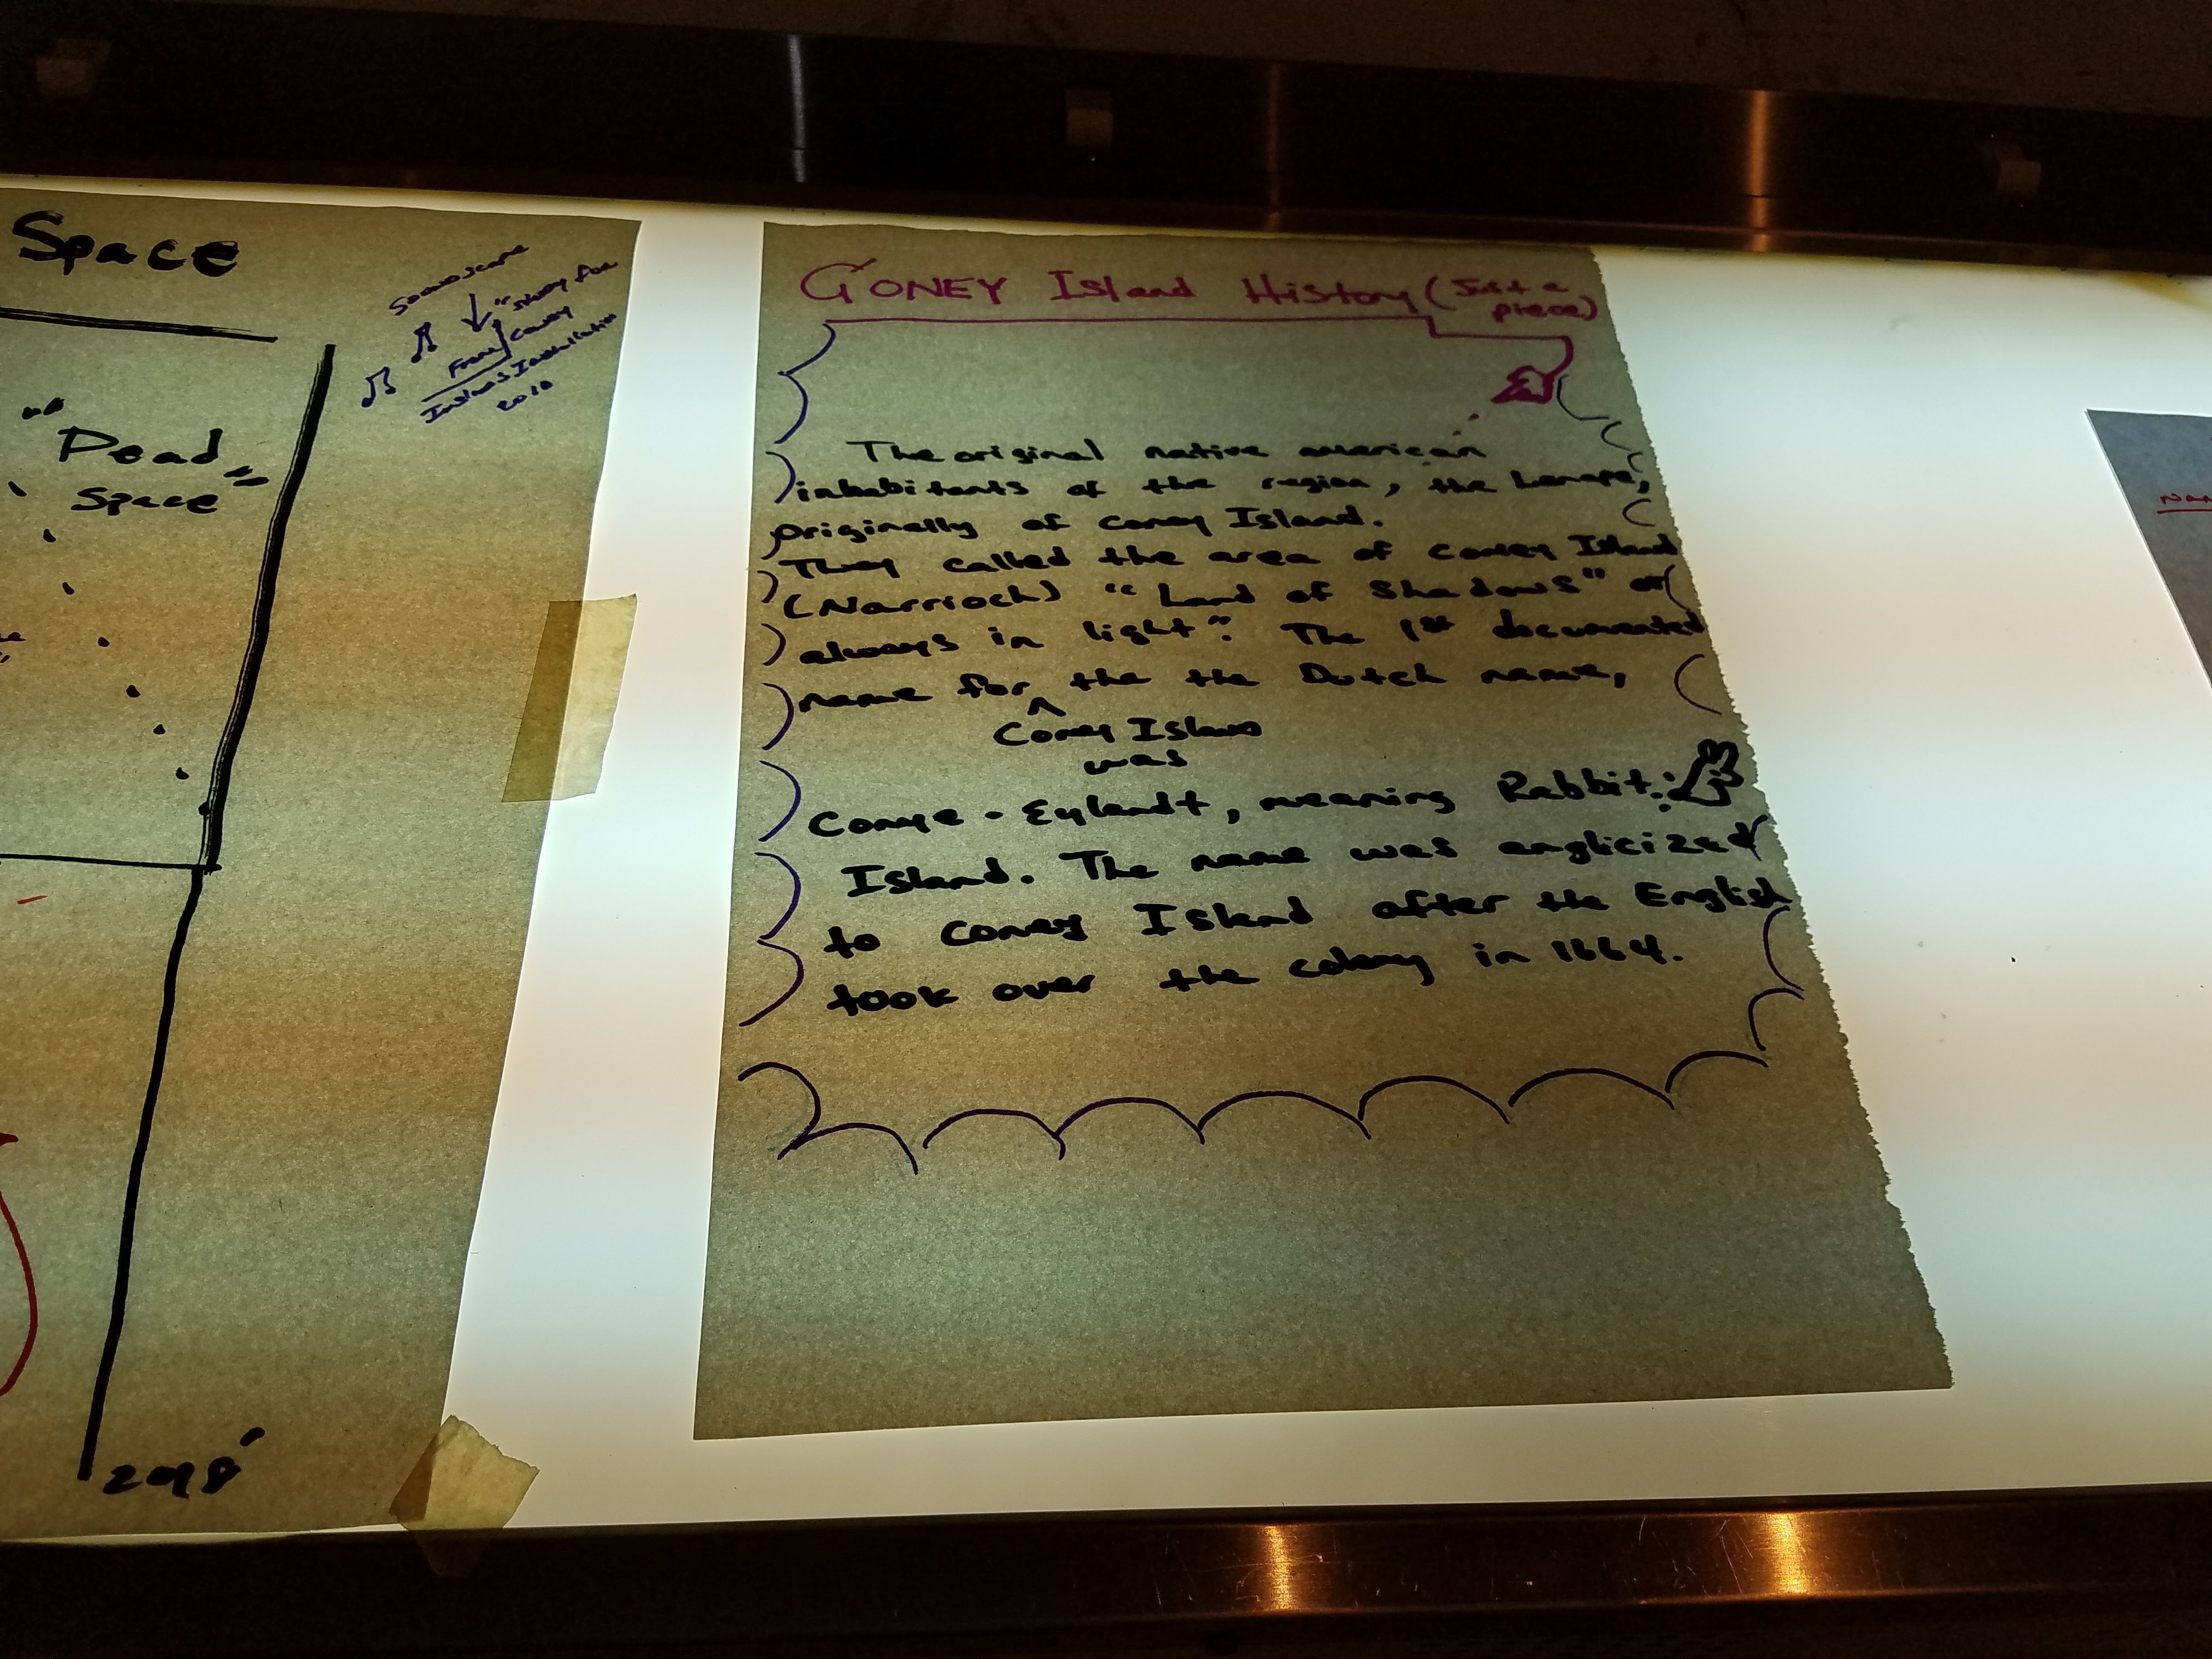 Space
"Dead
Space"
Soundscape
"Story for
Coney
Island Installation
2018
2018'
CONEY Island History (Just a
piece)
The original native american
inhabitants of the region, the Lenape,
originally of Coney Island.
They called the area of Coney Island
(Narrioch) "Land of Shadows" or
always in light". The 1st documented
name for the the Dutch name,
^
Coney Island
was
Conye - Eylandt, meaning Rabbit
Island. The name was anglicized
to Coney Island after the English
took over the colony in 1664.